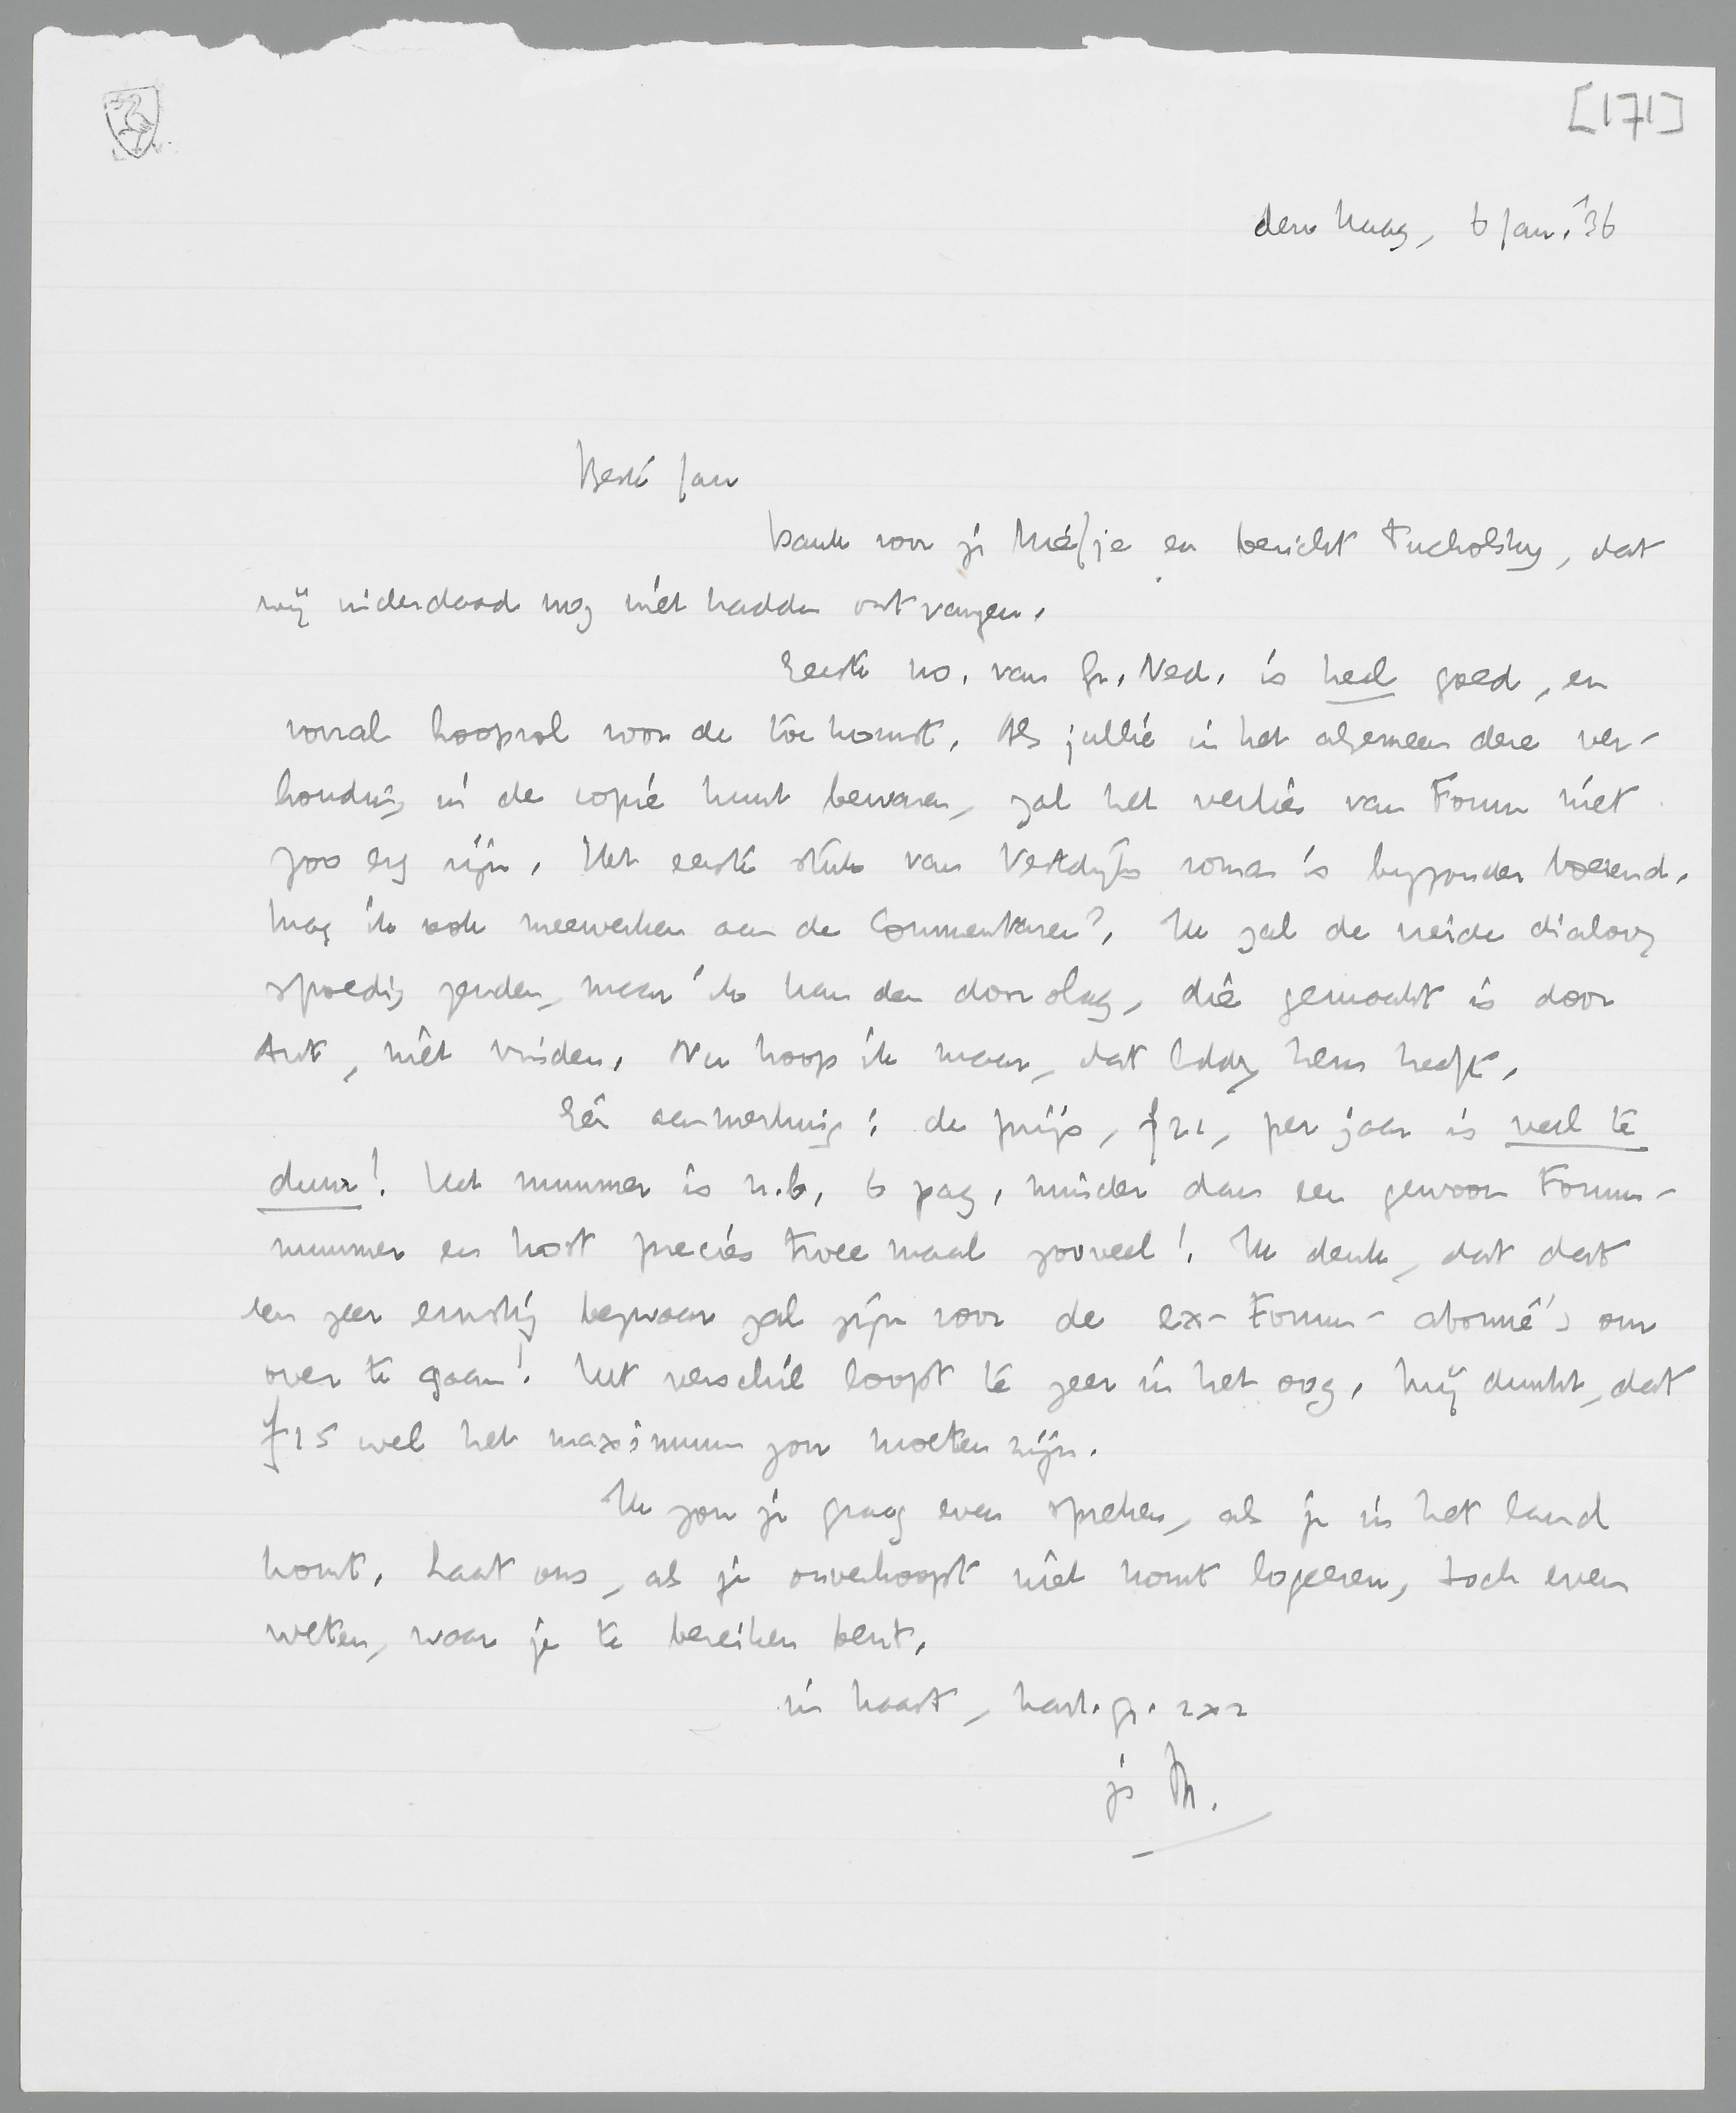 [171]
den Haag, 6 Jan. '36
Beste Jan
Dank voor je briefje en bericht Tucholsky, dat
wij inderdaad nog niet hadden ontvangen.
Eerste no. van Gr. Ned. is heel goed, en
vooral hoopvol voor de toekomst. Als jullie in het algemeen deze ver-
houding in de copie kunt bewaren, zal het verlies van Forum niet
zoo erg zijn. Het eerste stuk van Vestdijks roman is byzonder boeiend.
Mag ik ook meewerken aan de Commentaren? Ik zal de dialoog
spoedig zenden, maar ik kan den doorslag, die gemaakt is door
Ant, niet vinden. Nu hoop ik maar, dat Eddy hem heeft.
Eén aanmerking: de prijs, f 21, per jaar is veel te
duur! Het nummer is n.b. 6 pag. minder dan een gewoon Forum-
nummer en kost precies twee maal zooveel! Ik denk, dat dat
een zeer ernstig bezwaar zal zijn voor de ex-Forum-abonné's om
over te gaan! Het verschil loopt te zeer in het oog. Mij dunkt, dat
f 15 wel het maximum zou moeten zijn.
Ik zou je graag even spreken, als je in het land
komt. Laat ons, als je onverhoopt niet komt logeeren, toch even
weten, waar je te bereiken bent.
in haast, hart. gr. 2x2
je M.